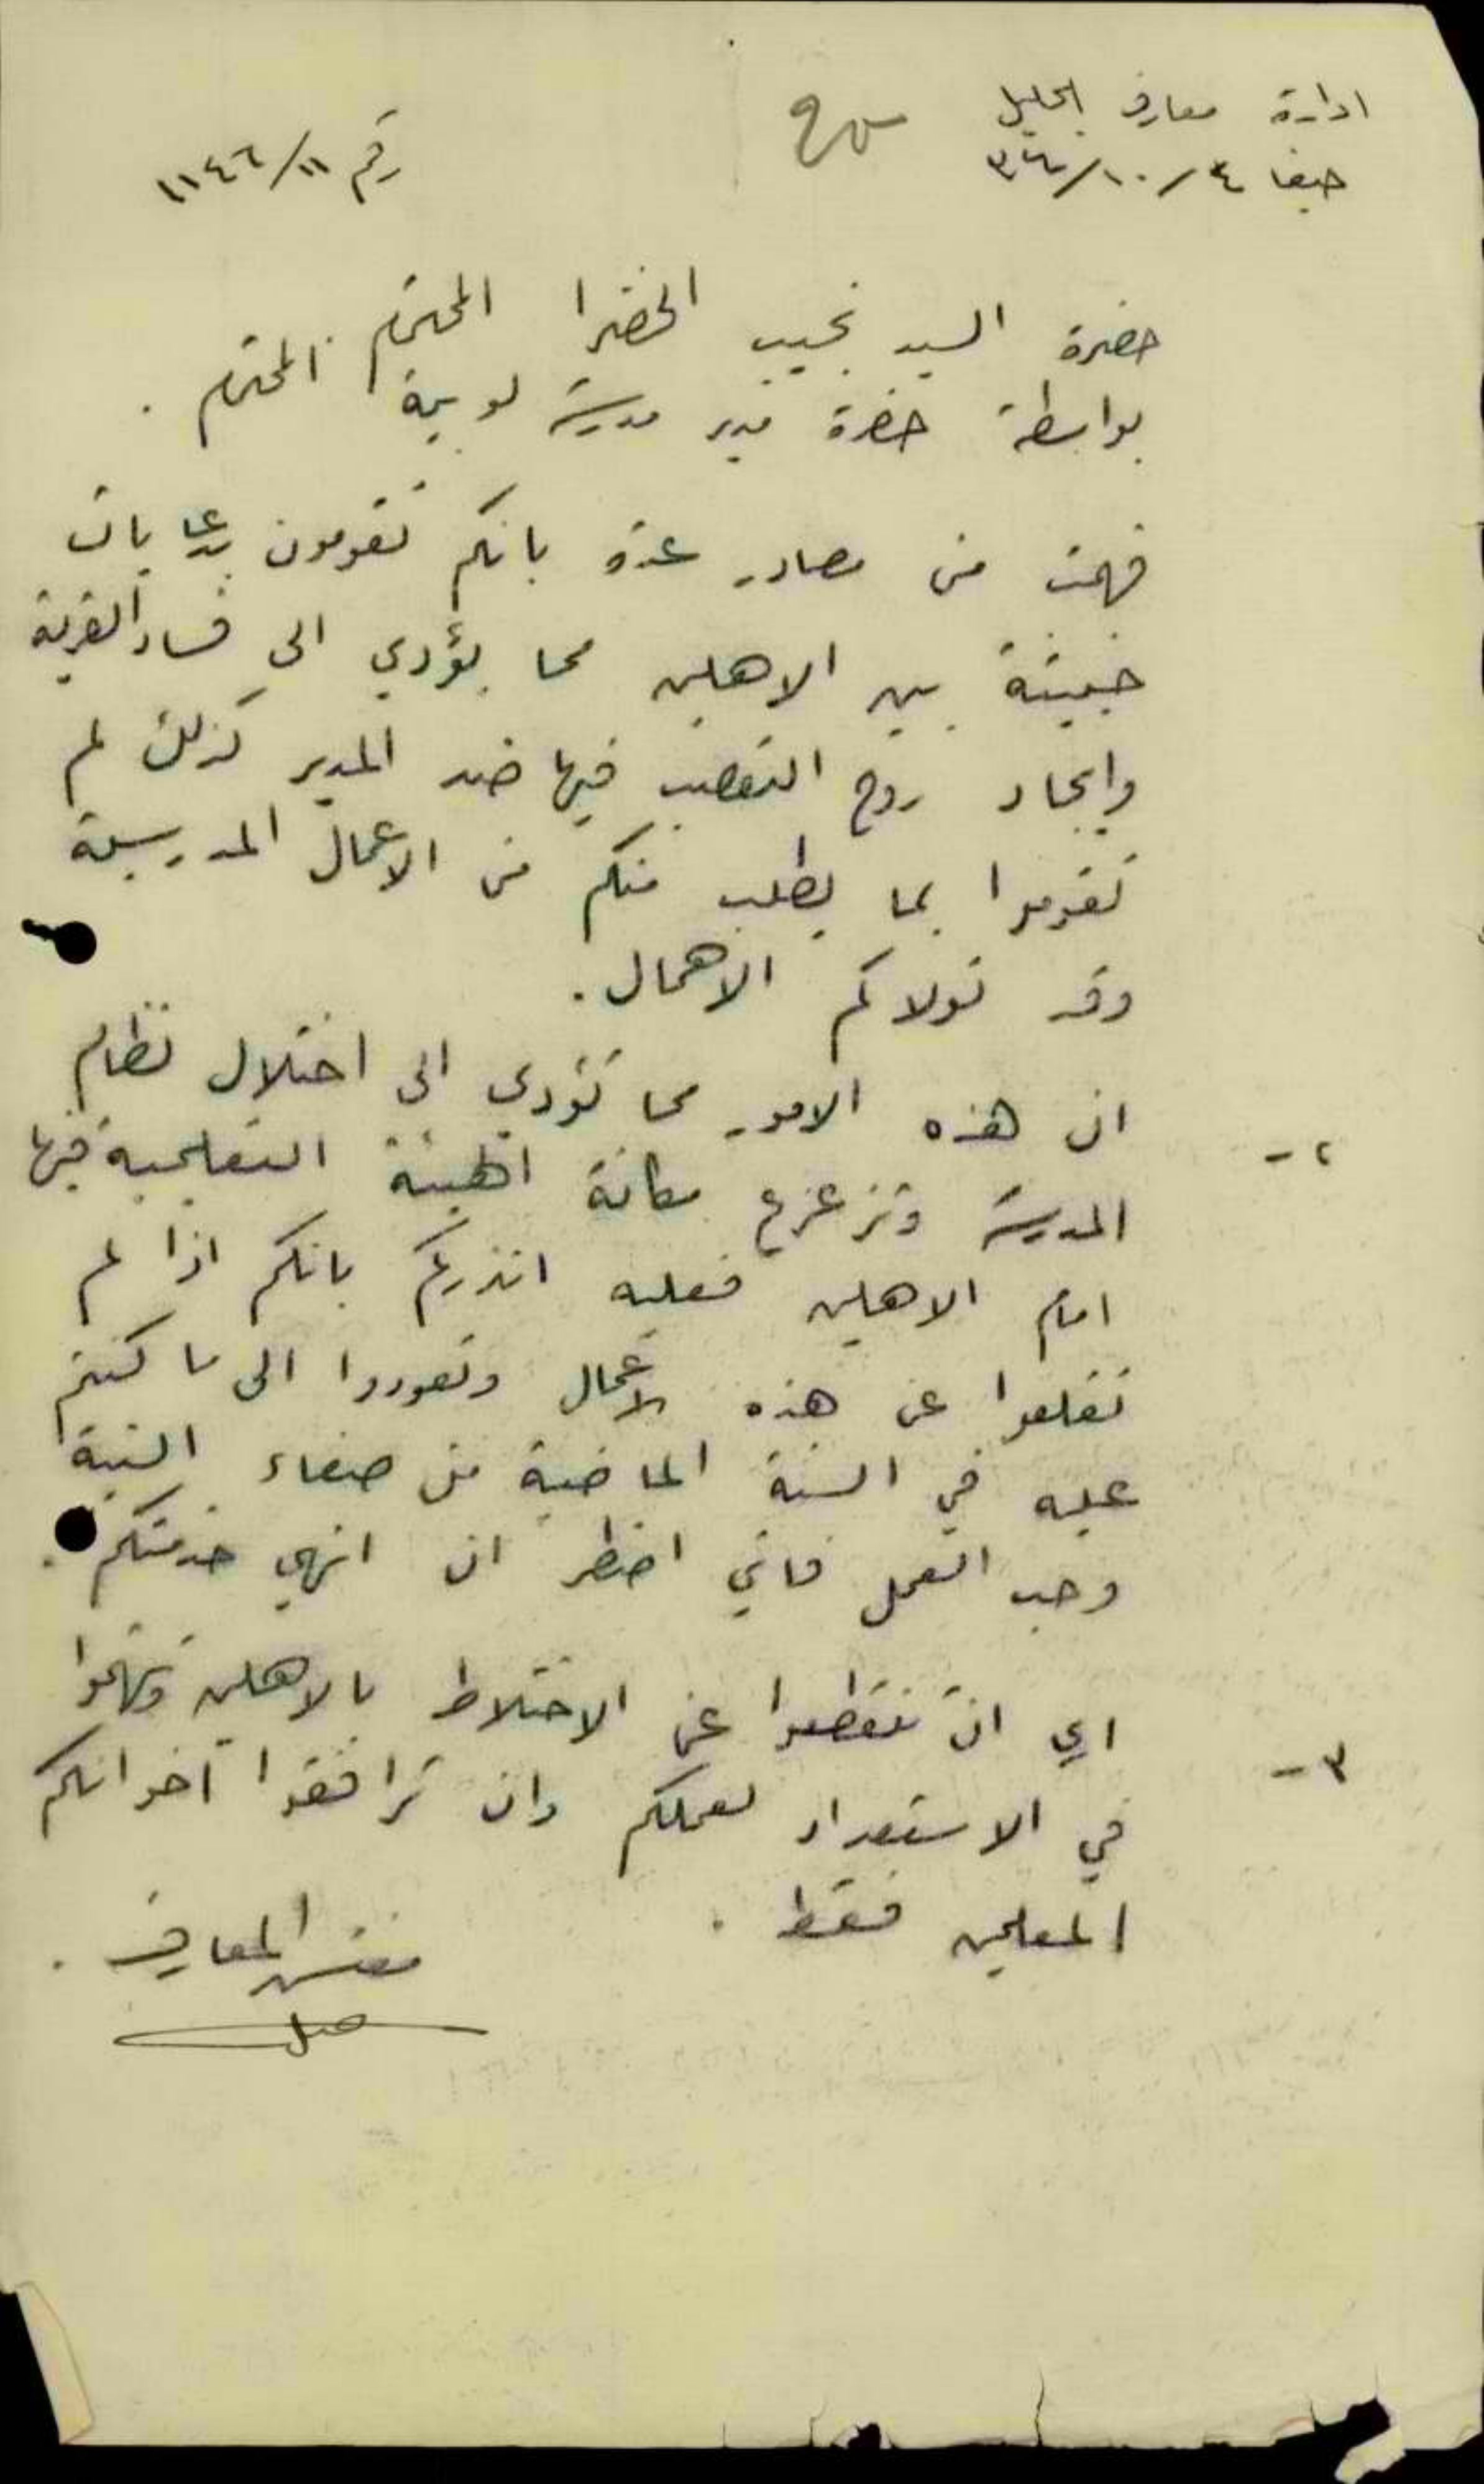 ادارة معارف الجليل
حيفا ٤/١٠/٣٤
رقم ١١/١١٤٦
حضرة السيد نجيب الخضرا المحترم
بواسطة حضرة مدير مدرسة لوبية المحترم .
فهمت من مصادر عدة بانكم تقومون بدعايات
خبيثة بين الاهلين مما يؤدي الى فساد القرية
وايجاد روح التعصب فيها ضد المدير كذلك لم
تقوموا بما يطلب منكم من الاعمال المدرسية
وقد تولاكم الاهمال .
٢- ان هذه الامور مما تؤدي الى اختلال نظام
المدرسة وتزعزع مكانة الهيئة التعليمية فيها
امام الاهلين فعليه انذركم بانكم اذا لم
تقلعوا عن هذه الاعمال وتعودوا الى ما كنتم
عليه في السنة الماضية من صفاء النية
وحب العمل فاني اضطر ان انهي خدمتكم .
٣- اي ان تنقطعوا عن الاختلاط بالاهلين وتهتموا
في الاستعداد لعملكم وان ترافقوا اخوانكم
المعلمين فقط .
مفتش المعارف .